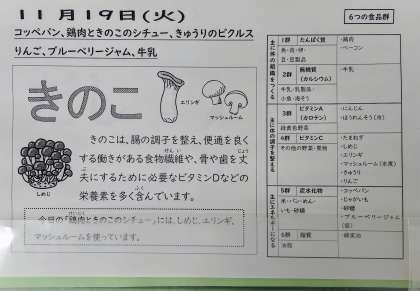 11月19日(火)
コッペパン、鶏肉ときのこのシチュー、きゅうりのピクルス
りんご、ブルーベリージャム、牛乳
きのこ
エリンギ
マッシュルーム
しめじ
きのこは、腸の調子を整え、便通を良く
する働きがある食物繊維や、骨や歯を丈
夫にするために必要なビタミンDなどの
栄養素を多く含んでいます。
今日の「鶏肉ときのこのシチュー」には、しめじ、エリンギ、
マッシュルームを使っています。
6つの食品群
主に体の組織をつくる
1群 たんぱく質
魚・肉・卵・
豆・豆製品
・鶏肉
・ベーコン
2群 無機質
(カルシウム)
牛乳・乳製品・
小魚・海そう
・牛乳
主に体の調子を整える
3群 ビタミンA
(カロテン)
緑黄色野菜
・にんじん
・ほうれんそう
4群 ビタミンC
その他の野菜・果物
・たまねぎ
・しめじ
・エリンギ
・マッシュルーム(水煮)
・きゅうり
・りんご
主にエネルギーになる
5群 炭水化物
米・パン・めん・
いも・砂糖
・コッペパン
・じゃがいも
・砂糖
・ブルーベリージャム
6群 脂質
油脂